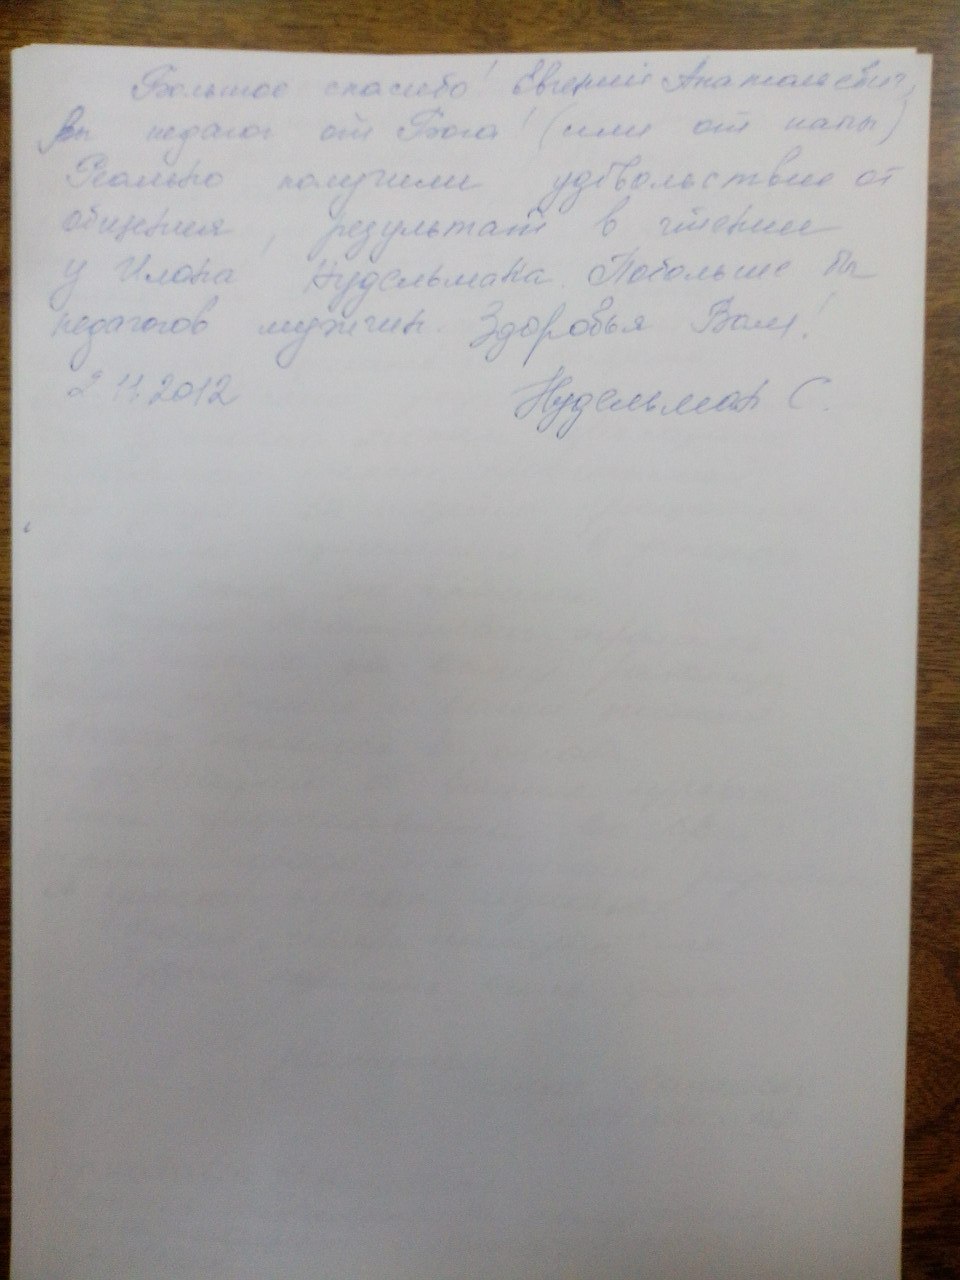 Большое спасибо! Евгений Анатольевич,
вы педагог от Бога! (или от папы)
Реально получили удовольствие от
общения, результат в чтении
у Илона Нудельмана. Побольше бы
педагогов мужчин. Здоровья Вам!
2.11.2012 Нудельман С.